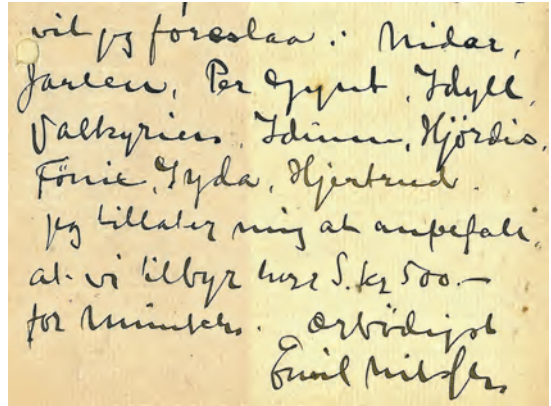 vil jeg foreslaa: Nidar,
Jarlen, Per Gynt, Idyll,
Valkyrien, Idunn, Hjördis,
Fönix, Gyda, Hjertrud.
jeg tillater mig at anbefale,
at vi tilbyr herr S. kr 500.-
for
ærbödigst
Emil